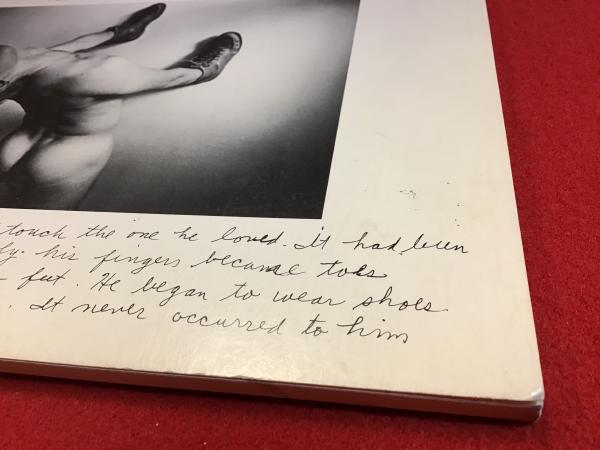 touch the one he loved. It had been
fly. his fingers became toes
feet. He began to wear shoes
. It never occurred to him